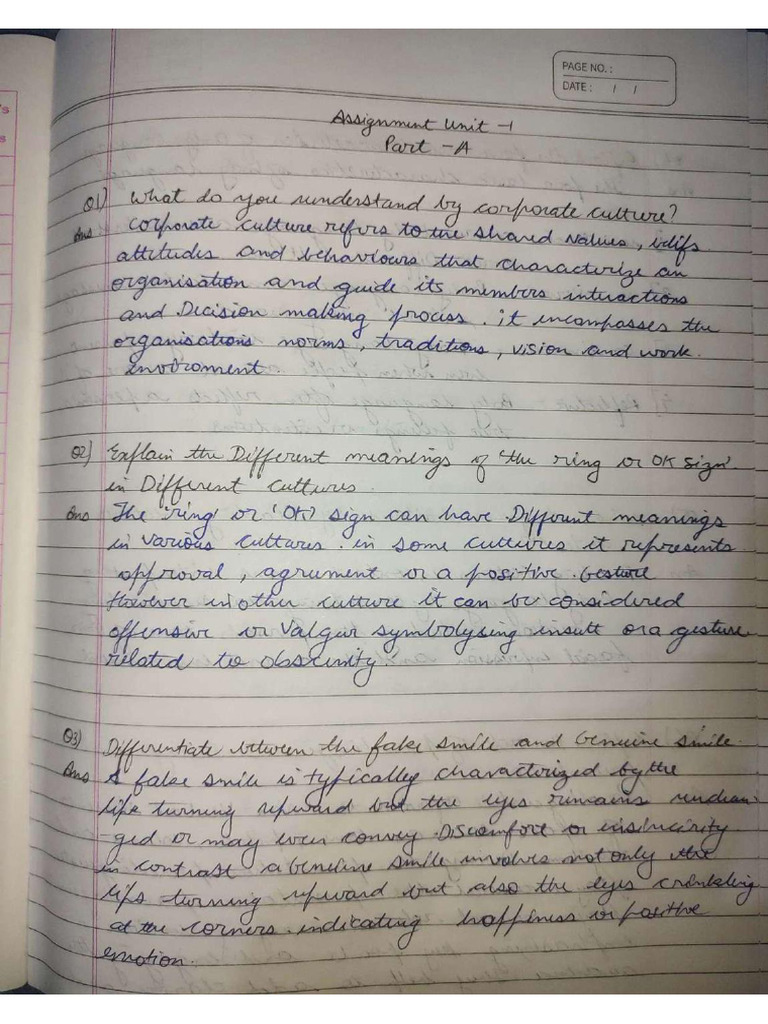 PAGE NO.:
DATE: / /
Assignment Unit -1
Part -A
Q1) What do you understand by corporate culture?
Ans corporate culture refers to the shared values, belifs
attitudes and behaviours that characterize an
organisation and guide its members interactions
and Decision making process. it encompasses the
organisations norms, traditions, vision and work.
Enviroment.
Q2) Explain the Different meanings of 'the ring or OK sign'
in Different cultures.
Ans The 'ring' or 'OK' sign can have Different meanings
in various cultures. in some cultures it represents
approval, agrument or a positive. Gesture
However in other culture it can be considered
offensive or Valgur symbolysing insult or a gesture
related to obscinity
Q3) Differentiate between the fake smile and Genuine smile.
Ans A fake smile is typically characterized by the
lips turning upward but the eyes remains unchan-
-ged or may even convey Discomfort or insincirity
in contrast a Genuine smile involves not only the
lips turning upward but also the eyes crinkeling
at the corners. indicating happiness or positive
emotion.